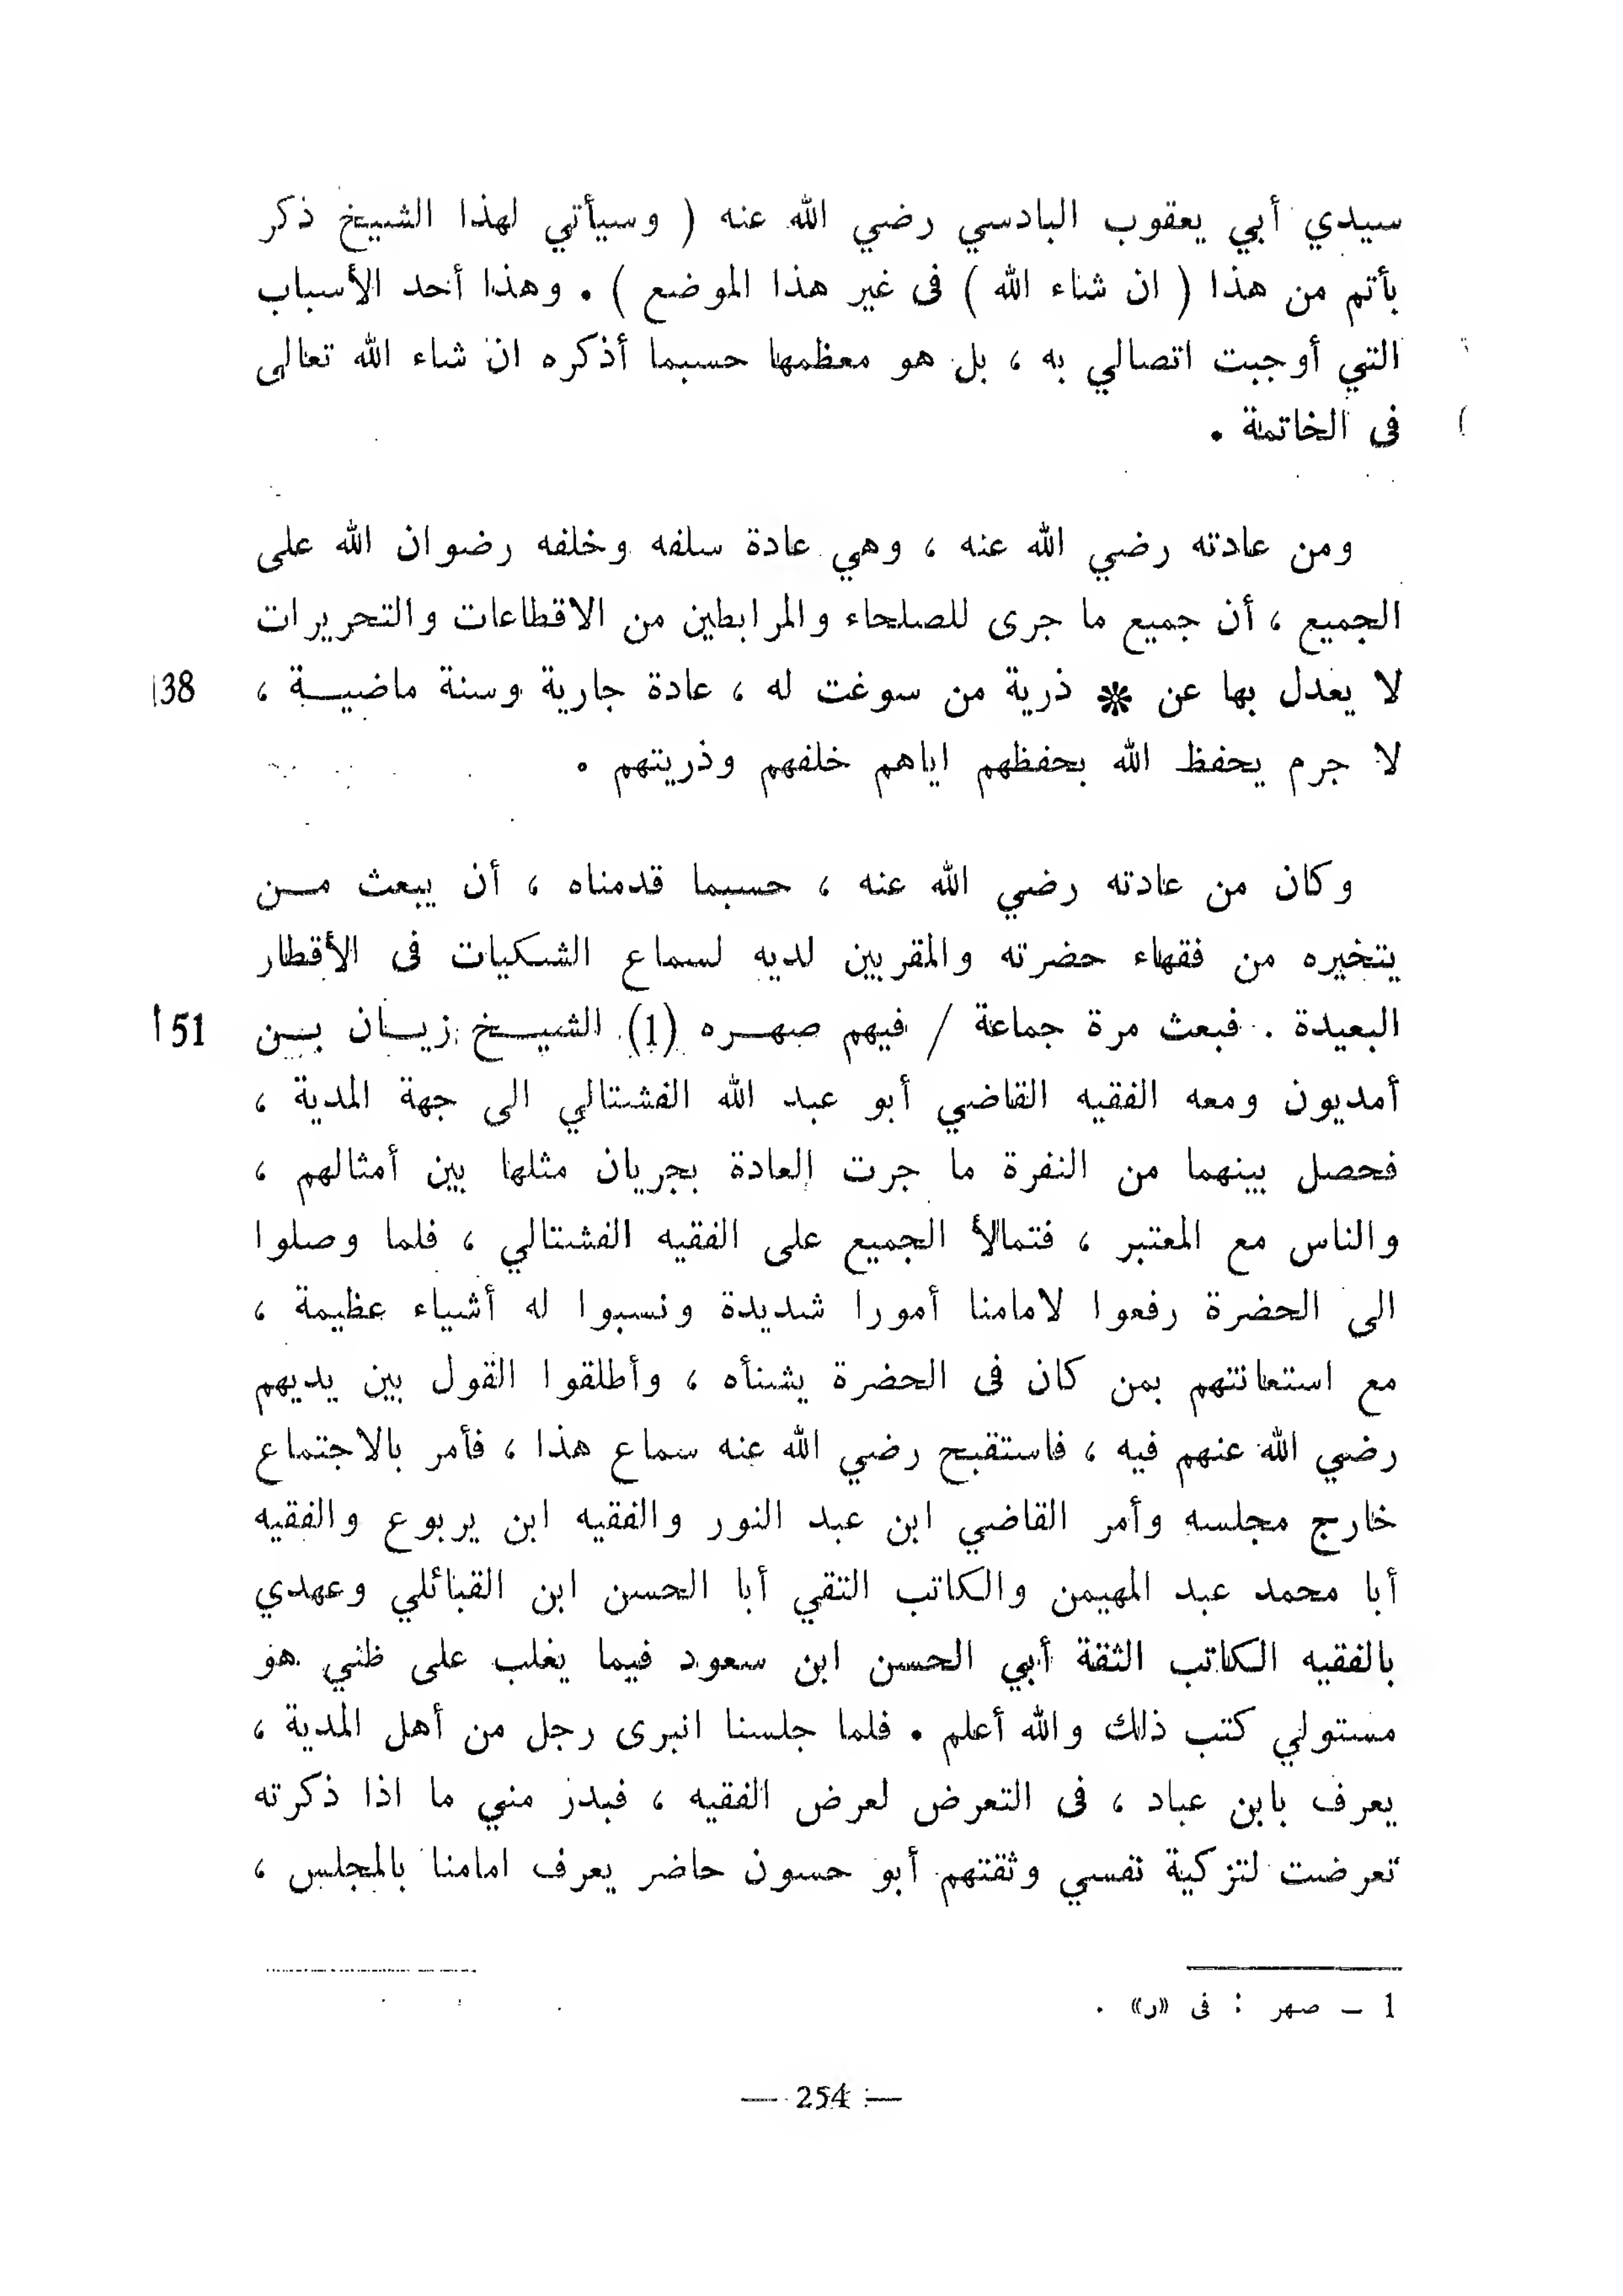 سيدي أبي يعقوب البادسي رضي الله عنه ( وسيأتي لهذا الشيخ ذكر
بأتم من هذا ( ان شاء الله ) فى غير هذا الموضع ) . وهذا أحد الأسباب
التي أوجبت اتصالي به ، بل هو معظمها حسبما أذكره ان شاء الله تعالى
فى الخاتمة .
ومن عادته رضي الله عنه ، وهي عادة سلفه وخلفه رضوان الله على
الجميع ، أن جميع ما جرى للصلحاء والمرابطين من الاقطاعات والتحريرات
لا يعدل بها عن * ذرية من سوغت له ، عادة جارية وسنة ماضيــة ، 38ا
لا جرم يحفظ الله بحفظهم اياهم خلفهم وذريتهم .
وكان من عادته رضي الله عنه ، حسبما قدمناه ، أن يبعث مــن
يتخيره من فقهاء حضرته والمقربين لديه لسماع الشكيات فى الأقطار
البعيدة . فبعث مرة جماعة / فيهم صهــره (1) الشيــخ زيــان بــن 51أ
أمديون ومعه الفقيه القاضي أبو عبد الله الفشتالي الى جهة المدية ،
فحصل بينهما من النفرة ما جرت العادة بجريان مثلها بين أمثالهم ،
والناس مع المعتبر ، فتمالأ الجميع على الفقيه الفشتالي ، فلما وصلوا
الى الحضرة رفعوا لامامنا أمورا شديدة ونسبوا له أشياء عظيمة ،
مع استعانتهم بمن كان فى الحضرة يشنأه ، وأطلقوا القول بين يديهم
رضي الله عنهم فيه ، فاستقبح رضي الله عنه سماع هذا ، فأمر بالاجتماع
خارج مجلسه وأمر القاضي ابن عبد النور والفقيه ابن يربوع والفقيه
أبا محمد عبد المهيمن والكاتب التقي أبا الحسن ابن القبائلي وعهدي
بالفقيه الكاتب الثقة أبي الحسن ابن سعود فيما يغلب على ظني هو
مستولي كتب ذلك والله أعلم . فلما جلسنا انبرى رجل من أهل المدية ،
يعرف بابن عباد ، فى التعرض لعرض الفقيه ، فبدر مني ما اذا ذكرته
تعرضت لتزكية نفسي وثقتهم أبو حسون حاضر يعرف امامنا بالمجلس ،
1 — صهر : فى «ر» .
— 254 —